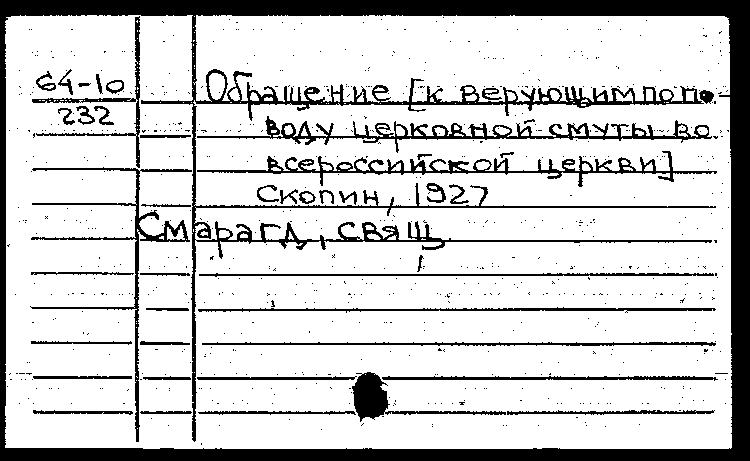 64-10
232
Обращение [к верующим по по-
воду церковной смуты во
всероссийской церкви]
Скопин, 1927
Смарагд, свящ.